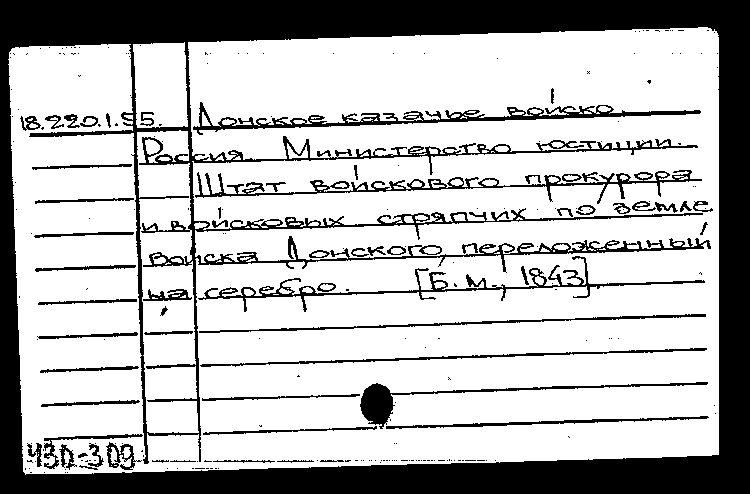 18.220.1.55. Донское казачье войско.
Россия. Министерство юстиции.
Штат войскового прокурора
и войсковых стряпчих по земле
войска Донского, переложенный
на серебро. [Б.м., 1843].
ЧЗД-309